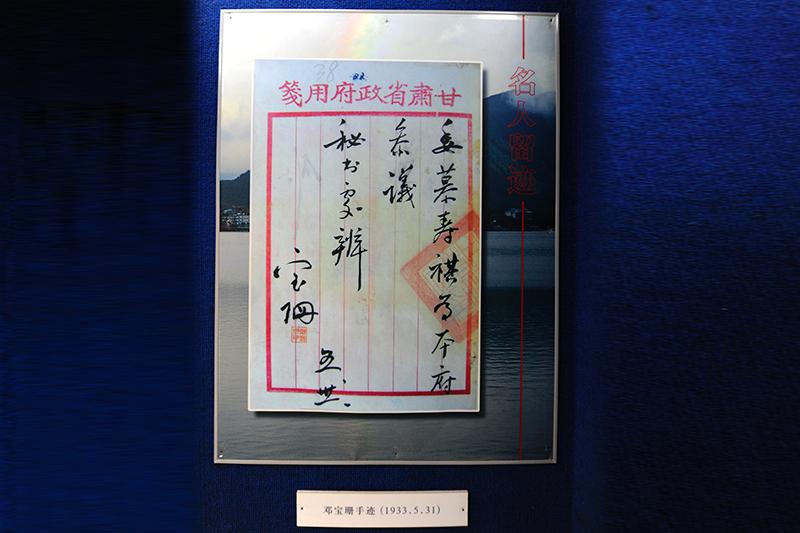 38
甘肅省政府用箋
委慕寿祺为本府
参議
秘书處辦
宝珊
名人留迹
邓宝珊手迹(1933.5.31)